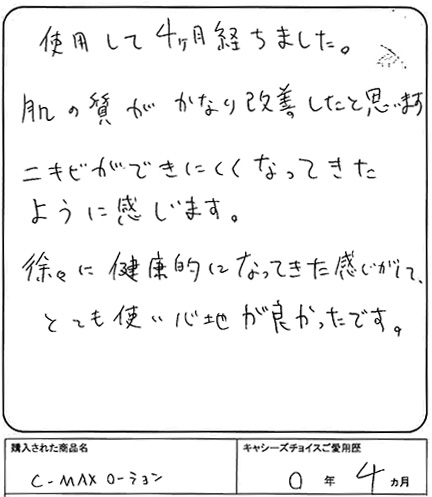 使用して4ヶ月経ちました。
肌の質がかなり改善したと思います
ニキビができにくくなってきた
ように感じます。
徐々に健康的になってきた感じがして、
とても使い心地が良かったです。
購入された商品名
キャシーズチョイスご愛用歴
C-MAXローション
0年 4ヵ月